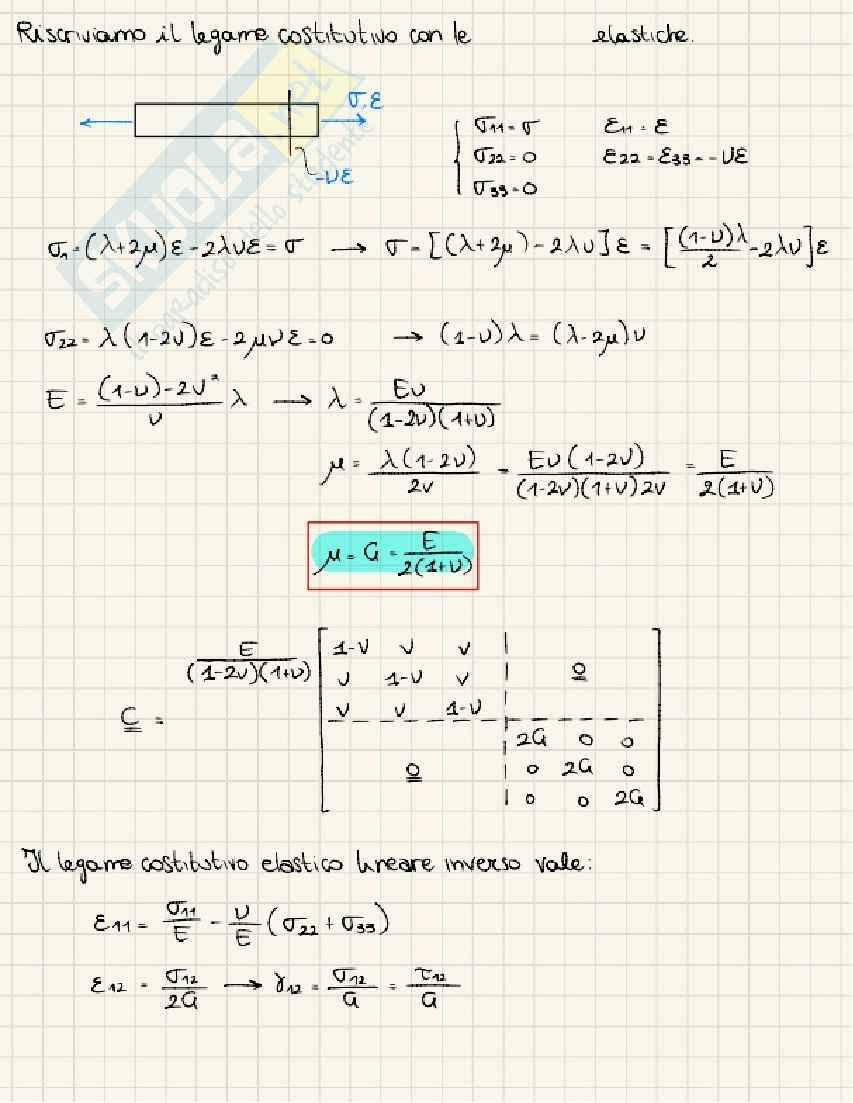 Riscriviamo il legame costitutivo con le elastiche.
σ,ε
-νε
σ11 = σ ε11 = ε
σ22 = 0 ε22 = ε33 = -νε
σ33 = 0
σ1 = (λ+2μ)ε - 2λνε = σ → σ = [(λ+2μ) - 2λν]ε = [(1-ν)λ/2 - 2λν]ε
σ22 = λ(1-2ν)ε - 2μνε = 0 → (1-ν)λ = (λ-2μ)ν
E = (1-ν)-2ν²/ν λ → λ = Eν/(1-2ν)(1+ν)
μ = λ(1-2ν)/2ν = Eν(1-2ν)/(1-2ν)(1+ν)2ν = E/2(1+ν)
μ = G = E/2(1+ν)
E/(1-2ν)(1+ν)
1-ν ν ν
ν 1-ν ν 0
ν ν 1-ν
C =
2G 0 0
0 0 2G 0
0 0 2G
Il legame costitutivo elastico lineare inverso vale:
ε11 = σ11/E - ν/E (σ22 + σ33)
ε12 = σ12/2G → γ12 = σ12/G = τ12/G
skuola.net
il paradiso dello studente